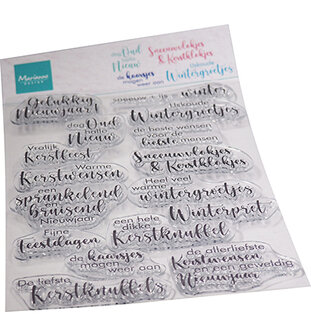 Marianne
DESIGN
dag Oud
hallo
Nieuw
Sneeuwvlokjes
& Kerstklokjes
de kaarsjes
mogen
weer aan
IJskoude
Wintergroetjes
Gelukkig
Nieuwjaar
winter
dag Oud
hallo
Nieuw
IJskoude
Wintergroetjes
de beste wensen
voor de
liefste mensen
Vrolijk
Kerstfeest
Sneeuwvlokjes
& Kerstklokjes
Warme
Kerstwensen
Heel veel
warme
wintergroetjes
een
sprankelend
en
bruisend
Nieuwjaar
Winterpret
Fijne
feestdagen
een hele
dikke
Kerstknuffel
de kaarsjes
mogen weer aan
de allerliefste
Kerstwensen
en een geweldig
Nieuwjaar
De liefste
Kerstknuffels